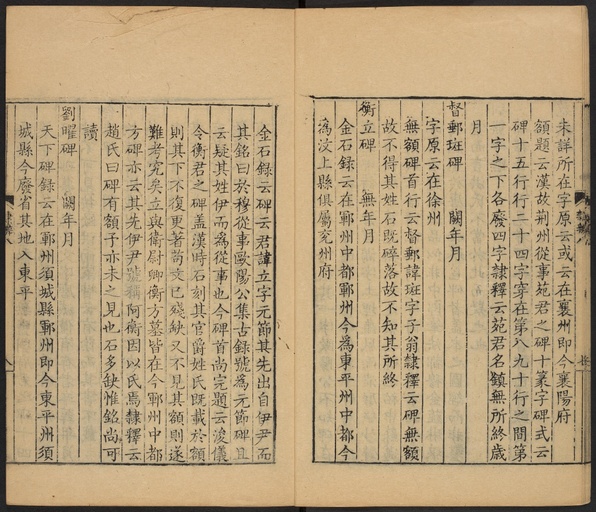 未詳所在字原云或云在襄州即今襄陽府
額題云漢故荆州從事苑君之碑十篆字碑式云
碑十五行行二十四字穿在第八九十行之間第
一字之下各廢四字隸釋云苑君名鎮無所終歲
月
督郵班碑 闕年月
字原云在徐州
無額碑首行云督郵諱班字子翁隸釋云碑無額
故不得其姓石既碎落故不知其所終
衡立碑 無年月
金石錄云在鄆州中都鄆州今為東平州中都今
為汶上縣俱屬兖州府
金石錄云碑云君諱立字元節其先出自伊尹而
其銘曰於穆從事歐陽公集古錄號為元節碑且
云疑其姓伊而為從事也今碑首尚完題云浚儀
令衡君之碑盖漢時石刻其官爵姓氏既載於額
則其下不復更著苟文已殘缺又不見其額則遂
難考究矣立與衛尉卿衡方墓皆在今鄆州中都
方碑亦云其先伊尹號稱阿衡因以氏焉隸釋云
趙氏曰碑有額子亦未之見也石多缺惟銘尚可
讀
劉曜碑 闕年月
天下碑錄云在鄆州須城縣鄆州即今東平州須
城縣今廢省其地入東平